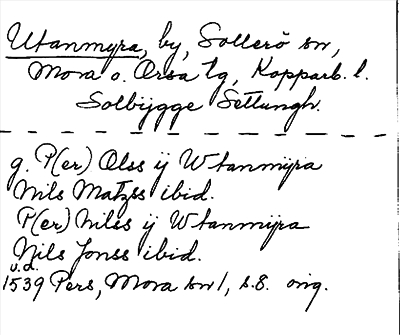 Utanmyra, by, Sollerö sn,
Mora o. Orsa tg, Kopparb. l.
Solbijgge Settungh.
g. P(er) Olss ij Wtanmÿra
Nils Matzss ibid.
P(er) Nilss ij Wtanmÿra
Nils Jonss ibid.
u.d.
1539 Pers, Mora sn 1, s.8. orig.